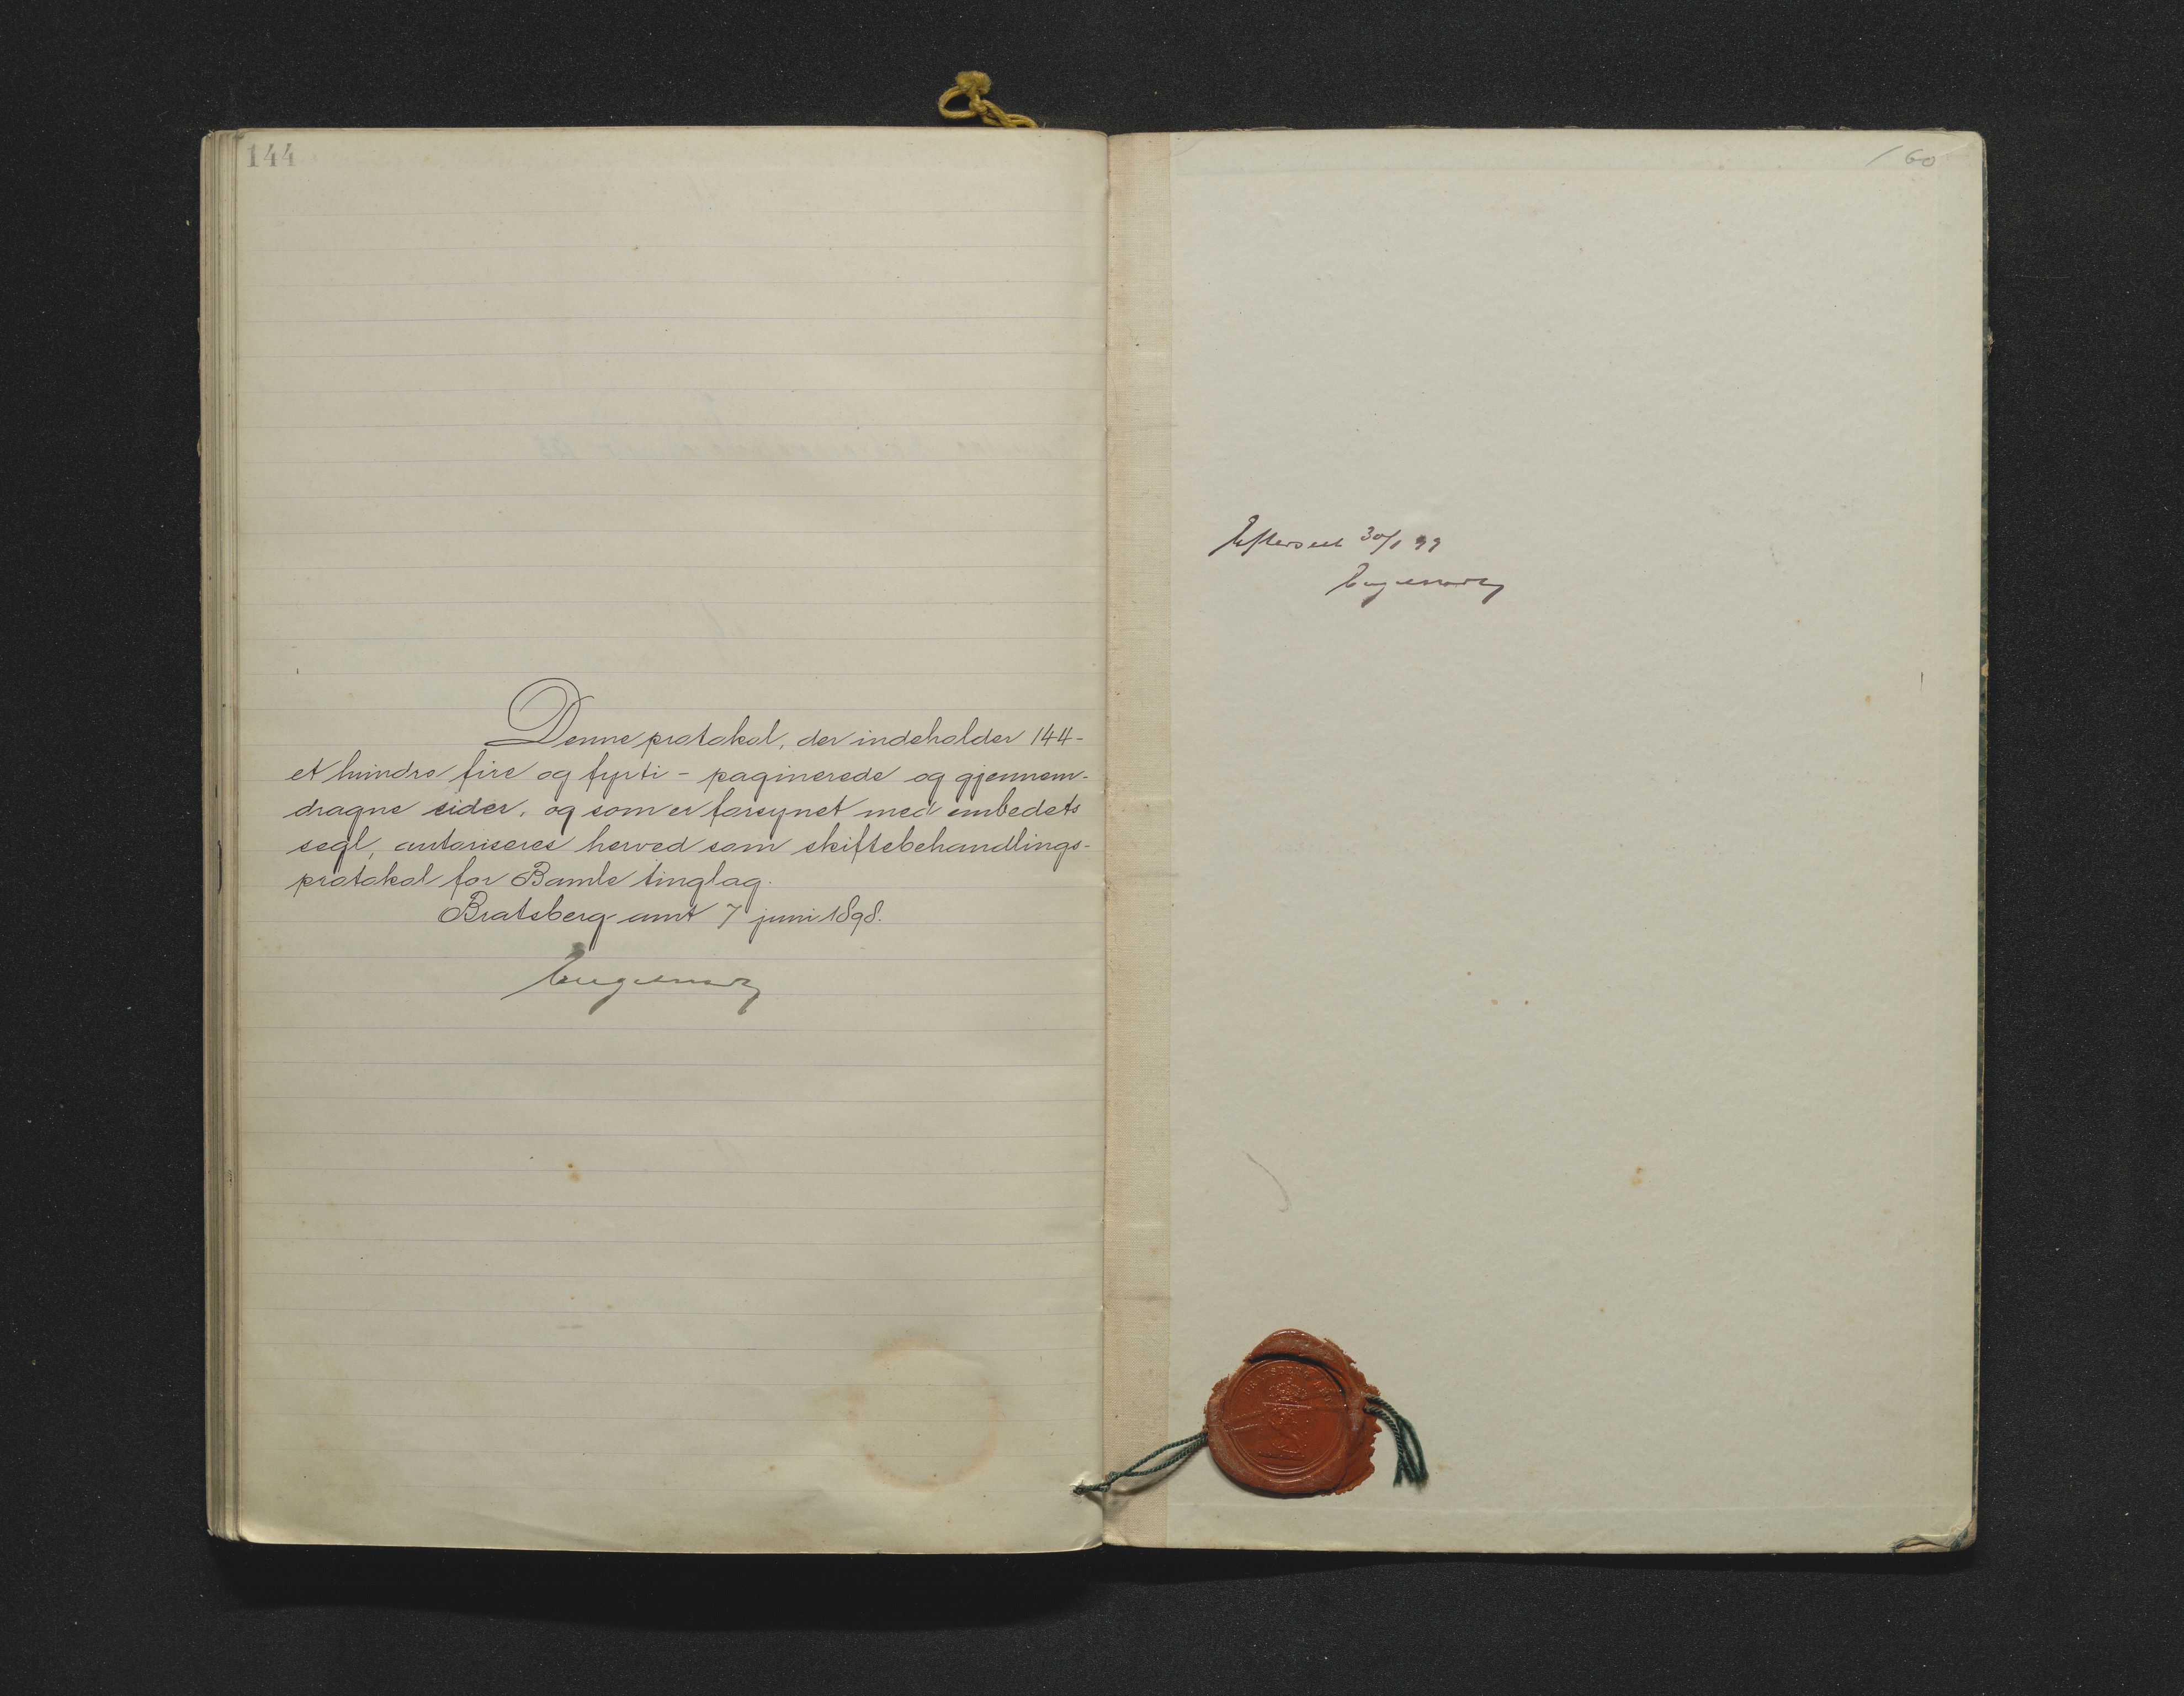 144
Denne protokol, der indeholder 144-
et hundre fire og fyrti - paginerede og gjennem-
dragne sider, og som er forsynet med embedets
segl, autoriseres herved som skiftebehandlings-
protokol for Bamle tinglag.
Bratsberg amt 7 juni 1898.
60
Efterseet 30/1 99